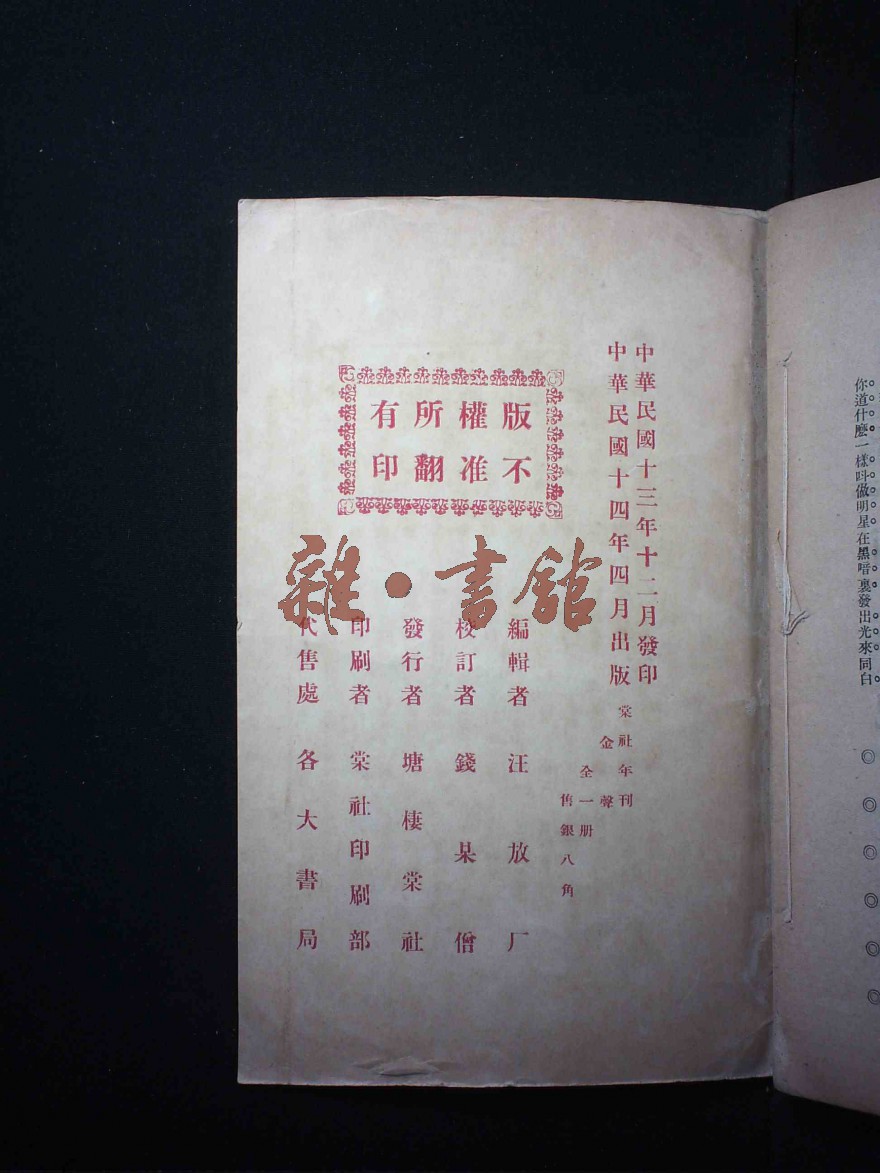 你道什麽一樣呌做明星在黑暗裏發出光來同白
中華民國十三年十二月發印
中華民國十四年四月出版
棠社年刊
金聲
全一册
售銀八角
版權所有
不准翻印
編輯者 汪放厂
校訂者 錢杲僧
發行者 塘棲棠社
印刷者 棠社印刷部
代售處 各大書局
雜·書館